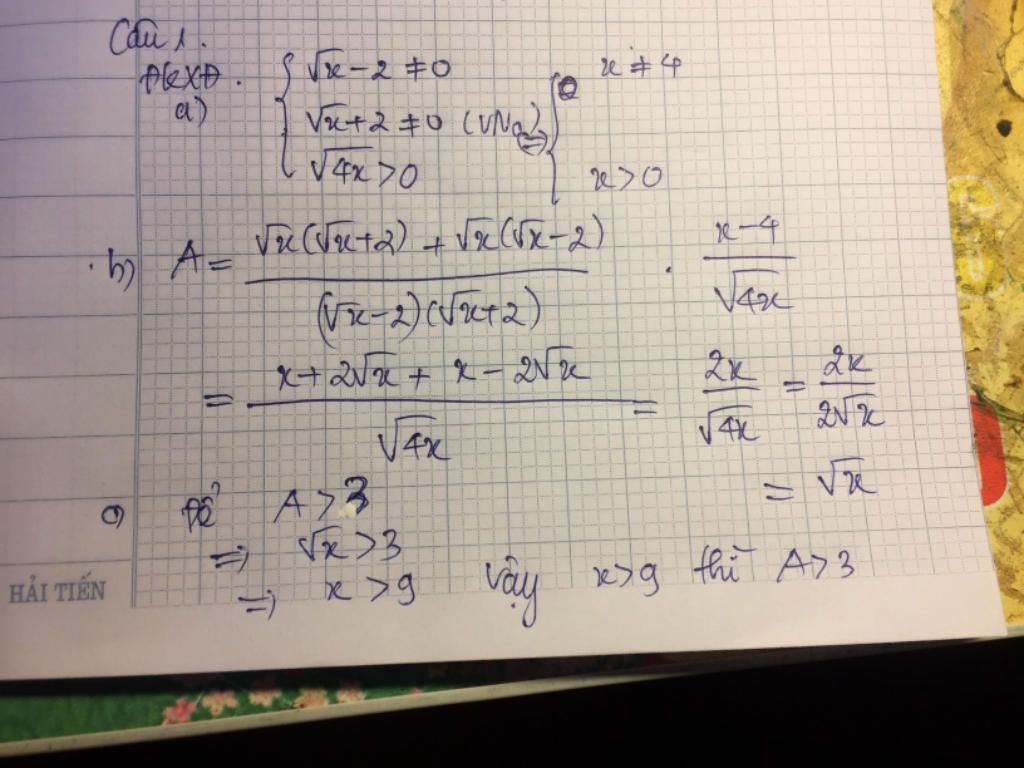 Câu 1.
ĐKXĐ.
a)
√x - 2 ≠ 0
x ≠ 4
√x + 2 ≠ 0 (VNo) ⇔
√4x > 0
x > 0
b) A = (√x(√x+2) + √x(√x-2)) / ((√x-2)(√x+2)) . (x-4)/√4x
= (x + 2√x + x - 2√x)/√4x = 2x/√4x = 2x/2√x
= √x
c) Để A > 3
⇒ √x > 3
⇒ x > 9 Vậy x > 9 thì A > 3
HẢI TIẾN